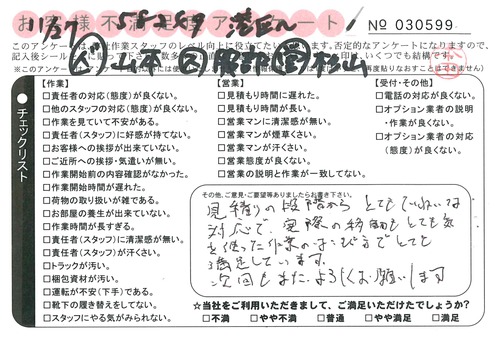 お客様不満足度アンケート
11/27
港区へ
No 030599
このアンケートは
山本 服部 松山
チェックリスト
【作業】
□責任者の対応(態度)が良くない。
□他のスタッフの対応(態度)が良くない。
□作業を見ていて不安がある。
□責任者(スタッフ)に好感が持てない。
□お客様への挨拶が出来ていない。
□ご近所への挨拶・気遣いが無い。
□作業開始前の内容確認がなかった。
□作業開始時間が遅れた。
□荷物の取り扱いが雑である。
□お部屋の養生が出来ていない。
□作業時間が長すぎる。
□責任者(スタッフ)に清潔感が無い。
□責任者(スタッフ)が汗くさい。
□トラックが汚い。
□梱包資材が汚い。
□運転が安車(下手)である。
□靴下の履き替えをしてない。
□スタッフにやる気がみられない。
【営業】
□見積もり時間に遅れた。
□見積もり時間が長い。
□営業マンに清潔感が無い。
□営業マンが煙草くさい。
□営業マンが汗くさい。
□営業態度が良くない。
□営業の説明と作業が一致してない。
【受付・その他】
□電話の対応が良くない。
□オプション業者の説明・作業が良くない。
□オプション業者の対応(態度)が良くない。
その他、ご意見・ご要望等ありましたらお書き下さい。
見積りの段階から とてもていねいな
対応で、実際の移動もとても気
を使った作業のはこびまでとても
満足しています。
次回もまた、よろしくお願いします
☆当社をご利用いただきまして、ご満足いただけたでしょうか?
□不満 □やや不満 □普通 □やや満足 □満足